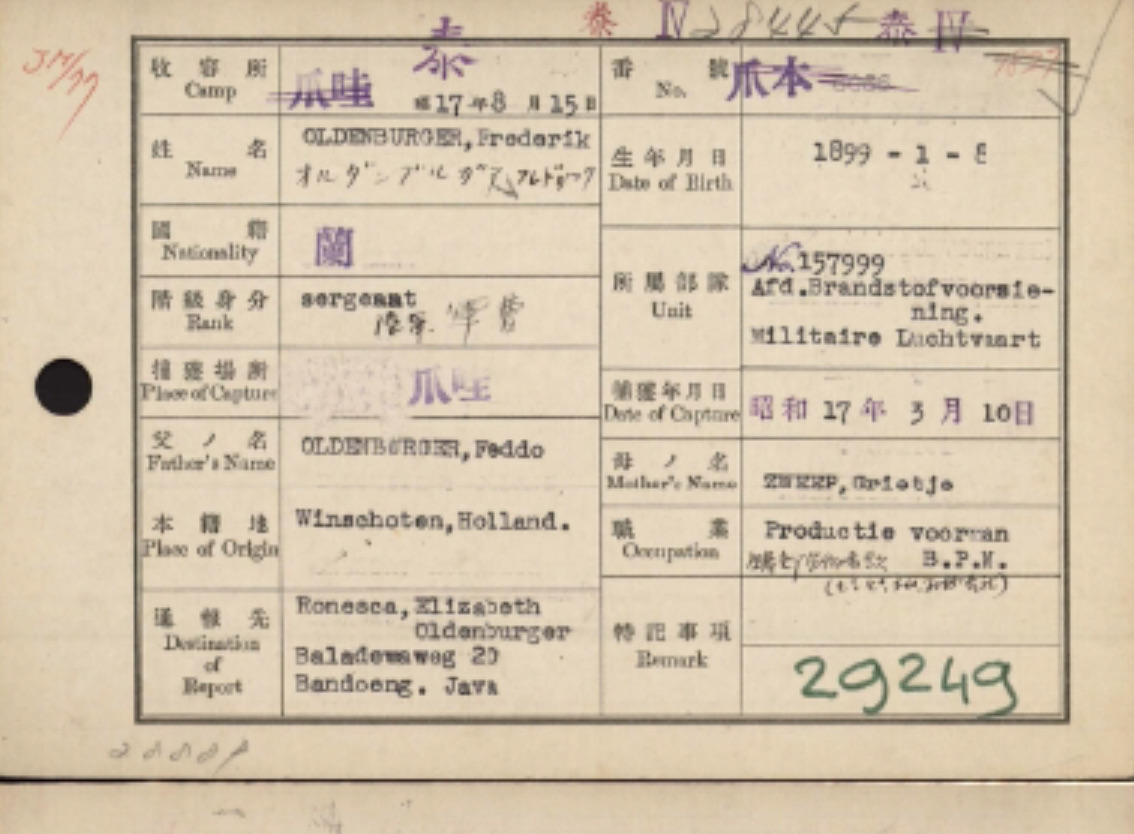 泰 IV 28445 泰 IV
JM/77
收容所 Camp
泰
爪哇
昭17年8月15日
番號 No.
爪本
姓名 Name
OLDENBURGER,Frederik
生年月日 Date of Birth
1899 - 1 - 8
國籍 Nationality
蘭
所屬部隊 Unit
No.157999
Afd.Brandstofvoorzie-
ning.
Militaire Luchtvaart
階級身分 Rank
sergeant
陸軍
捕獲場所 Place of Capture
爪哇
捕獲年月日 Date of Capture
昭和 17 年 3 月 10日
父ノ名 Father's Name
OLDENBURGER,Feddo
母ノ名 Mother's Name
ZWEEP,Grietje
本籍地 Place of Origin
Winschoten,Holland.
職業 Occupation
Productie voorman
B.P.M.
通報先 Destination of Report
Ronesca,Elizabeth
Oldenburger
Baladewaweg 20
Bandoeng. Java
特記事項 Remark
29249